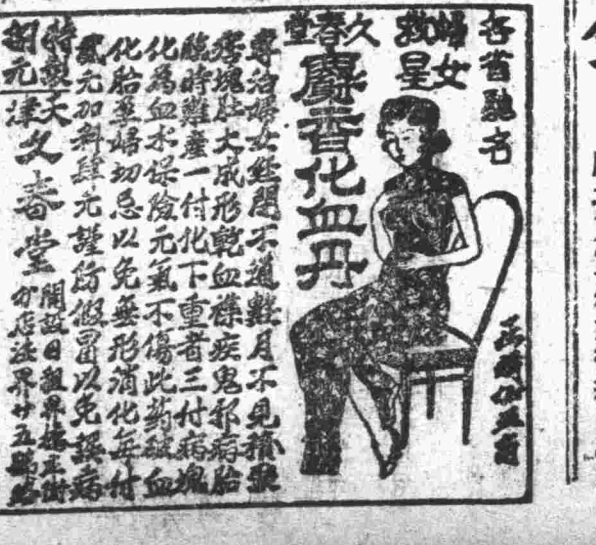 各省馳名
婦女
救星
久春堂
麝香化血丹
專治婦女經閉不通數月不見積聚
痞塊肚大成形乾血癆疾鬼邪病胎
臨時難產一付化下重者三付病塊
化為血水保險元氣不傷此药破血
化胎孕婦切忌以免無形消化每付
貳元加料肆元謹防假冒以免誤病
天津久春堂
開設日租界旭正街
分店法界廿五號路